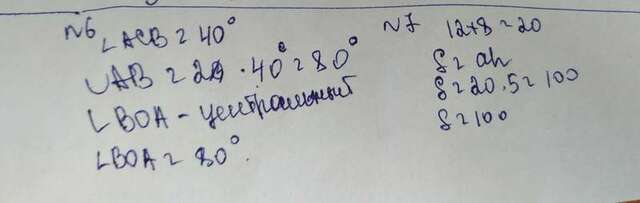 №6
∠ACB = 40°
∪AB = 2 · 40° = 80°
∠BOA - центральный
∠BOA = 80°.
№7 12+8=20
S = ah
S = 20 · 5 = 100
S = 100